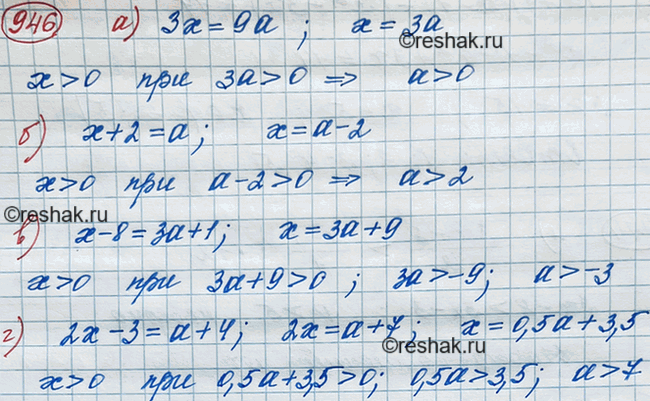 946 а) 3x = 9a ; x = 3a
©reshak.ru
x > 0 при 3a > 0 ⇒ a > 0
б) x + 2 = a ; x = a - 2
x > 0 при a - 2 > 0 ⇒ a > 2
©reshak.ru
в) x - 8 = 3a + 1 ; x = 3a + 9
x > 0 при 3a + 9 > 0 ; 3a > -9 ; a > -3
г) 2x - 3 = a + 4 ; 2x = a + 7 ; x = 0,5a + 3,5
©reshak.ru
x > 0 при 0,5a + 3,5 > 0 ; 0,5a > 3,5 ; a > 7